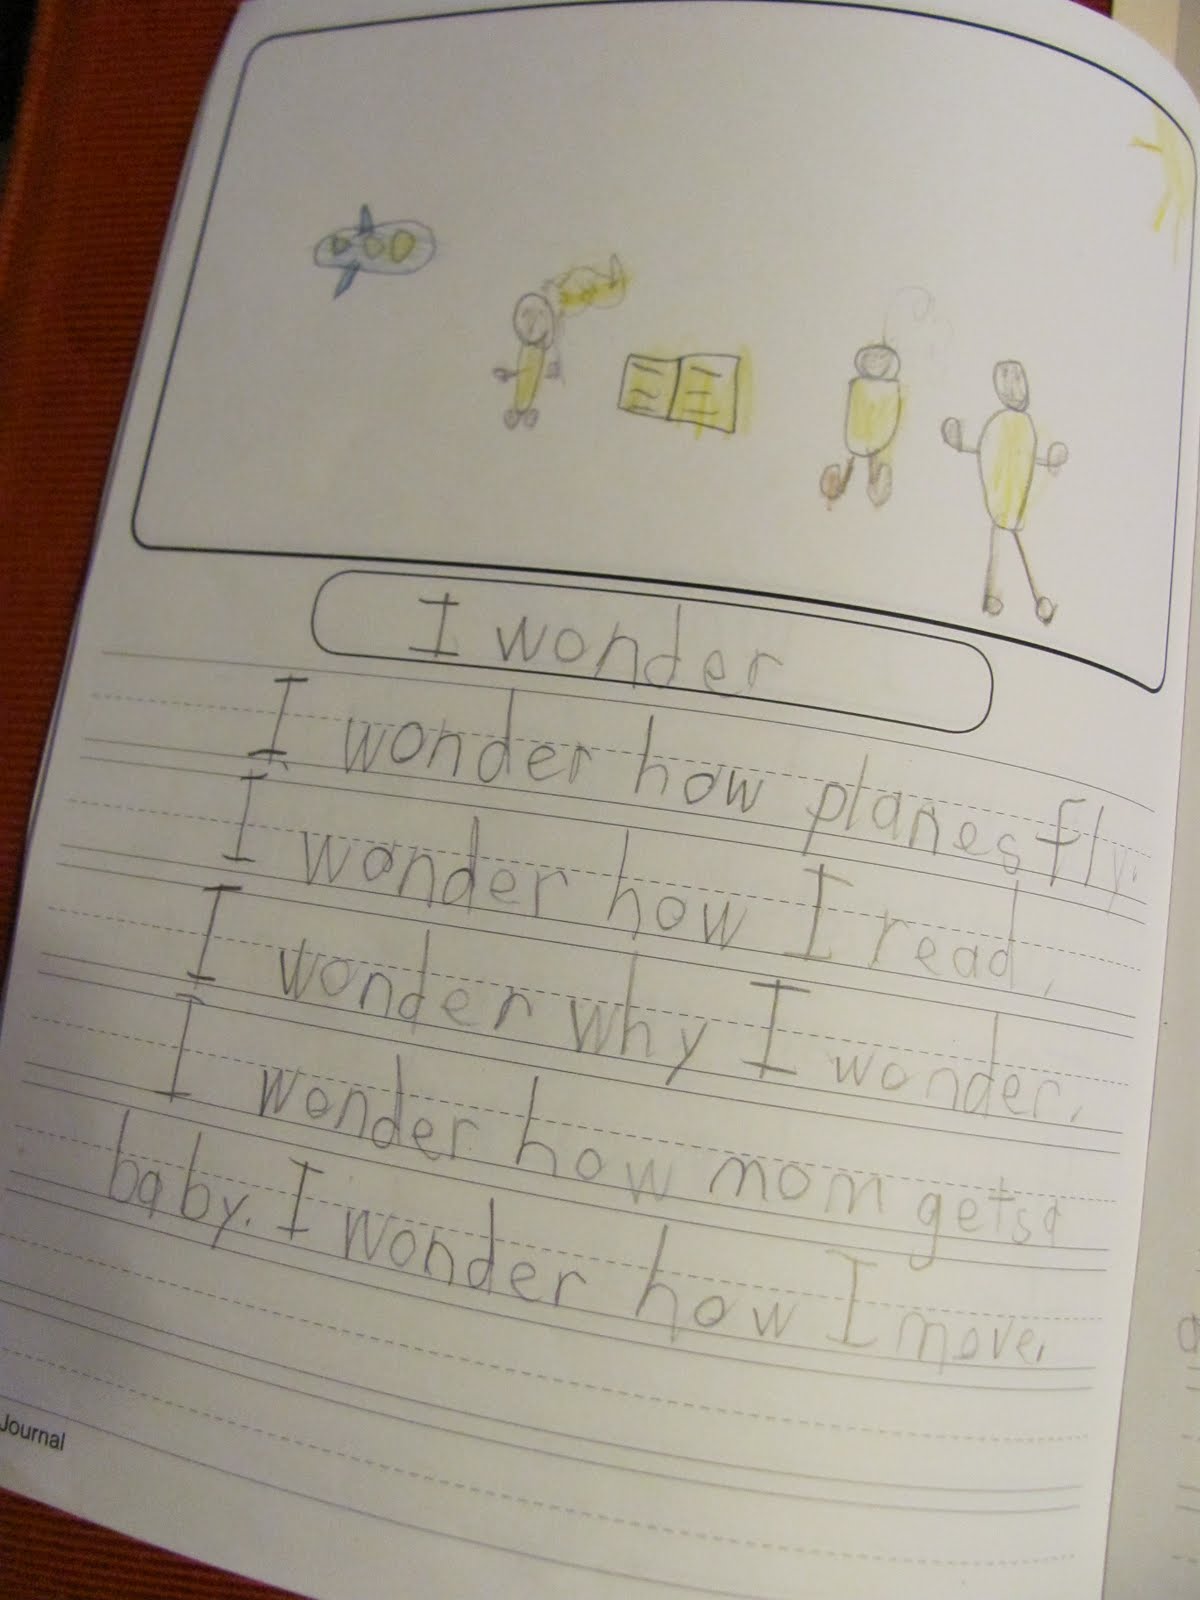 I wonder
I wonder how planes fly.
I wonder how I read.
I wonder why I wonder.
I wonder how mom gets a
baby. I wonder how I move.
Journal